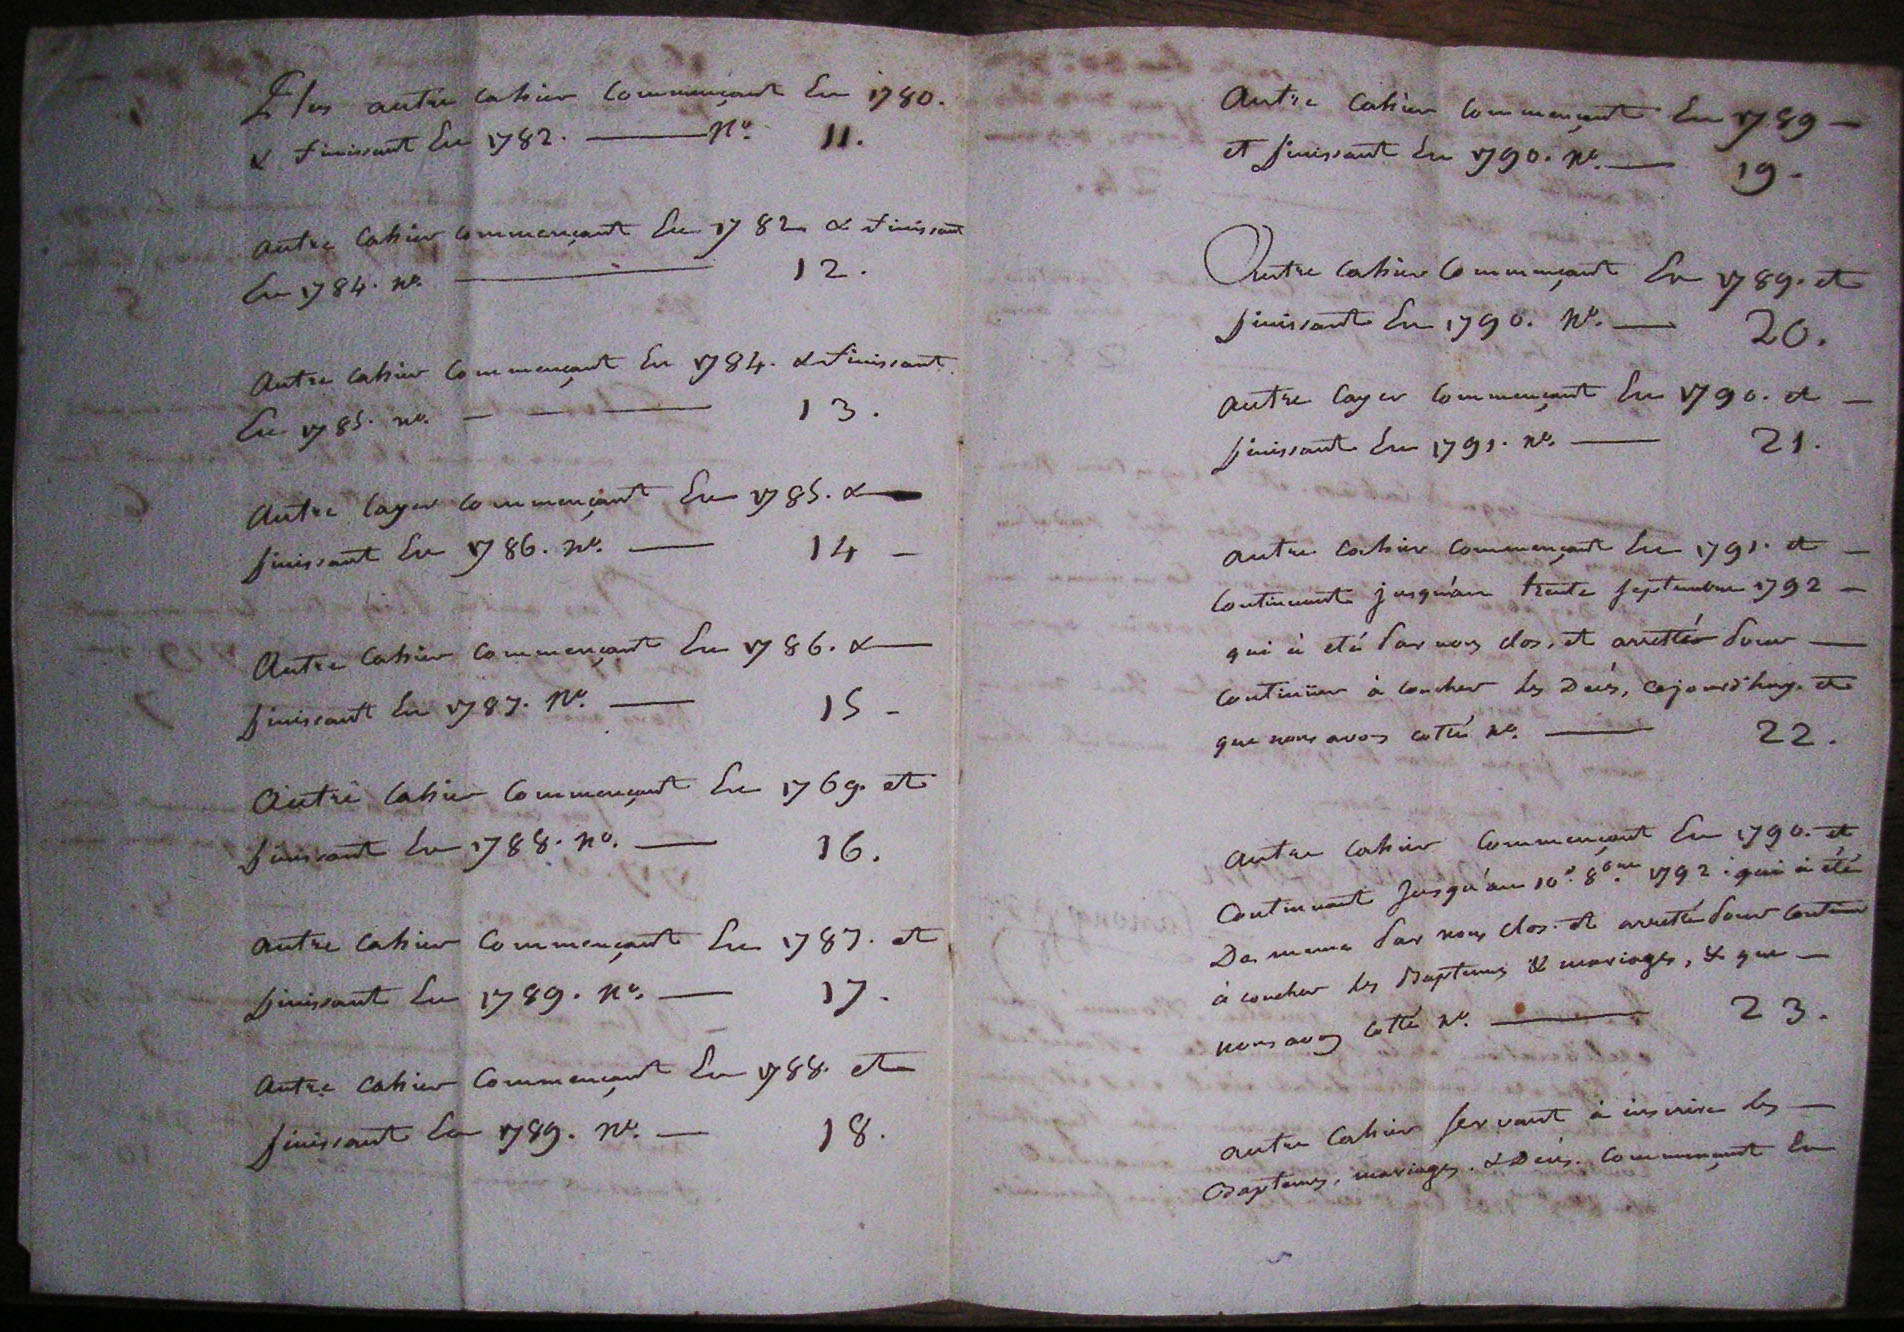 Plus autre cahier commençant En 1780.
& finissant En 1782. ——— N.o 11.
autre cahier commençant En 1782 & finissant
En 1784. no. ——— 12.
Autre cahier commençant En 1784. & finissant
En 1785. no. ——— 13.
Autre cayer commençant En 1785. & —
finissant En 1786. no. — 14 —
Autre cahier commençant En 1786. & —
finissant En 1787. No. — 15 —
Autre cahier commençant En 1769. et
finissant En 1788. no. — 16.
autre cahier commençant En 1787. et
finissant En 1789. no. — 17.
autre cahier commençant En 1788. et
finissant En 1789. no. — 18.
Autre cahier commençant En 1789 —
et finissant En 1790. no. — 19.
Autre cahier commençant En 1789. et
finissant En 1790. No. — 20.
autre cayer commençant En 1790. et —
finissant En 1791. no. — 21.
autre cahier commençant En 1791. et —
continuant jusqu'au trente septembre 1792 —
qui à eté par nous clos, et arretté pour —
continüer à coucher les Decès, cejourd'huy. et
que nous avons cotté no. — 22.
autre cahier commençant En 1790. et
continuant jusqu'au 10e. 8bre. 1792. qui à été
De meme par nous clos. et arretté pour continuer
à coucher les Baptemes & mariages, & que —
nous avons cotté no. — 23.
autre cahier servant à inscrire les —
Baptemes, mariages. & Decès. commençant En